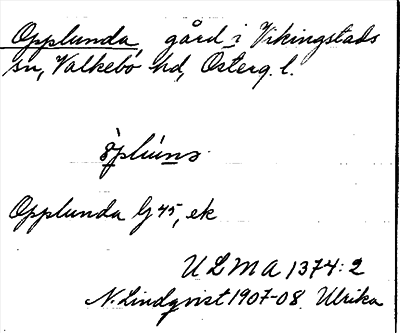 Opplunda, gård i Vikingstads
sn, Valkebo hd, Österg. l.
öplúns
Opplunda G 45, ek
ULMA 1374:2
N. Lindqvist 1907-08. Ulrika